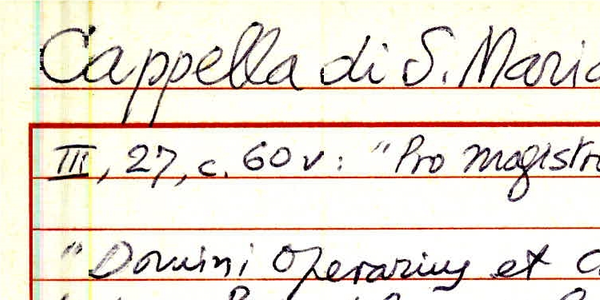 Cappella di S. Maria
III, 27, c. 60v: "Pro magistr
"Domini Operarius et